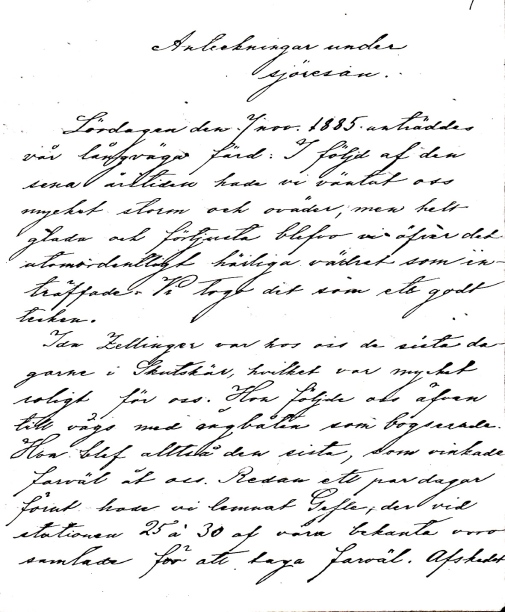 Anteckningar under
sjöresan.
Lördagen den 7 nov. 1885 anträddes
vår långväga färd. I följd af den
sena årstiden hade vi väntat oss
mycket storm och oväder, men helt
glada och förtjusta blefvo vi öfver det
utomordentligt härliga vädret som in-
träffade. Vi togo det som ett godt
tecken.
Ida Zellinger var hos oss de sista da-
garne i Skutskär, hvilket var mycket
roligt för oss. Hon följde oss äfven
till vägs med ångbåten som bogserade.
Hon blef alltså den sista, som vinkade
farväl åt oss. Redan ett par dagar
förut hade vi lemnat Gefle, der vid
stationen 25 à 30 af våra bekanta voro
samlade för att taga farväl. Afskedet